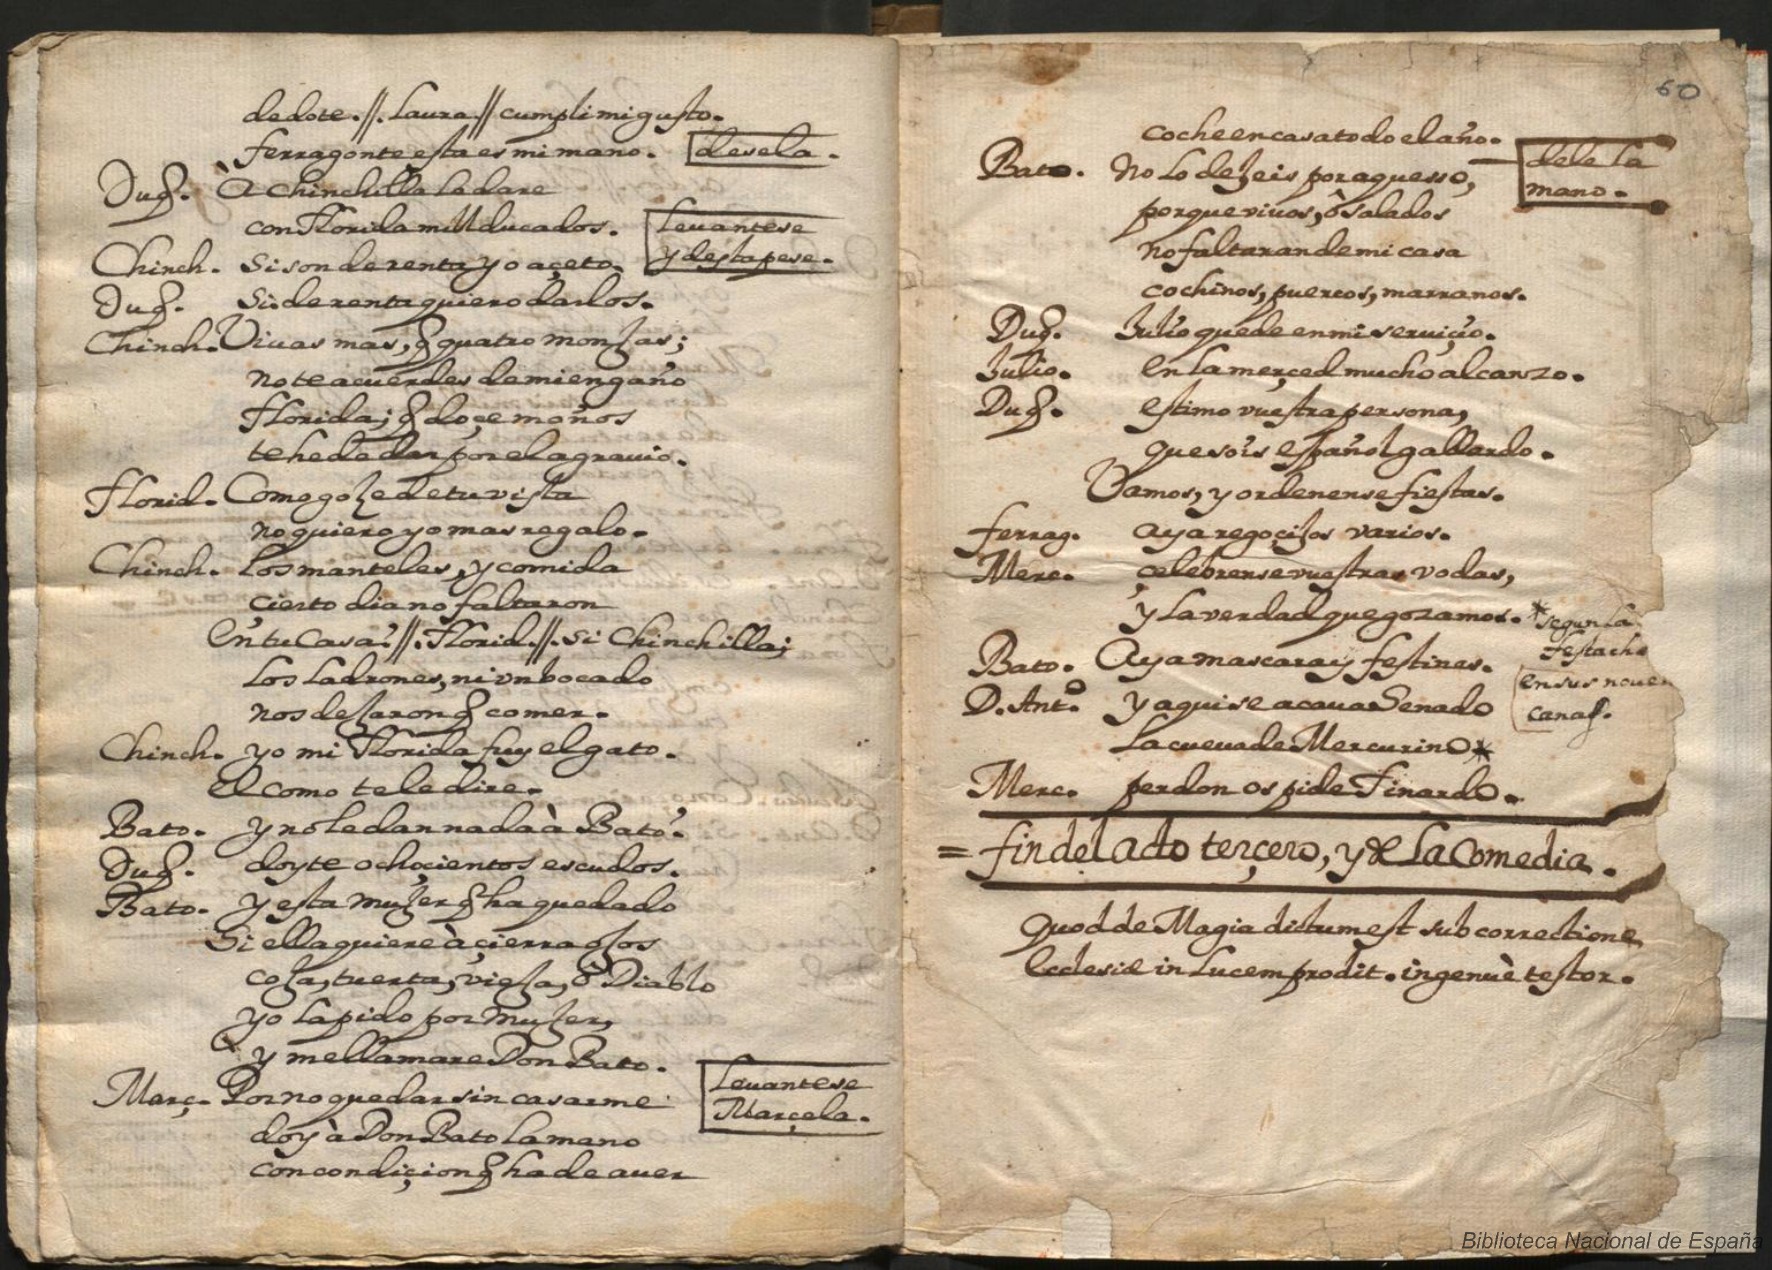 de dote.//. Laura// cumpli mi gusto.
ferragonte esta es mi mano. desela.
Duq̃. À Chinchilla le dare
con Florida mill ducados. Leuantese
Chinch. Si son de renta yo açeto. y destapese.
Duq̃. Si. de renta quiero darlos.
Chinch. Viuas mas, q̃ quatro monjas;
no te acuerdes de mi engaño
Florida; q̃ doçe moños
te he de dar por el agrauio.
Florid. Como goze de tu vista
no quiero yo mas regalo.
Chinch. Los manteles, y comida
çierto dia no faltaron
en tu casa?//. Florid.//. Si Chinchilla;
los ladrones, ni vn bocado
nos dejaron q̃ comer.
Chinch. yo mi Florida fuy el gato.
el como te le dire.
Bato. y no le dan nada à Bato?.
Duq̃. doyte ochoçientos escudos.
Bato. y esta mujer q̃ ha quedado
Si ella quiere à çierra ojos
coja, tuerta, vieja, ò Diablo
yo la pido por mujer,
y me llamare Don Bato.
Març. Por no quedar sin casarme Leuantese
Marçela.
doy à Don Bato la mano
con condiçion q̃ ha de auer
60
coche en casa todo el año.
Bato. No lo dejeis por aquesso, dele la
mano.
porque viuos, ò salados
no faltaran de mi casa
cochinos, puercos, marranos.
Duq̃. Julio quede en mi seruiçio.
Julio. en la merçed mucho alcanzo.
Duq̃. estimo vuestra persona,
que sois español gallardo.
Vamos, y ordenense fiestas.
ferrag. aya regoçijos varios.
Merc. çelebrense vuestras vodas,
y la verdad que gozamos. *segun la
festach
Bato. Aya mascara y festines.
en sus nouen
D. Ant.º y aqui se acaua Senado
canas.
La cueua de Mercurino*
Merc. perdon os pide Finardo.
= fin del acto terçero, y de la Comedia.
Quod de Magia dictum est sub correctione
Ecclesiæ in Lucem prodit. ingenuè testor.
Biblioteca Nacional de España